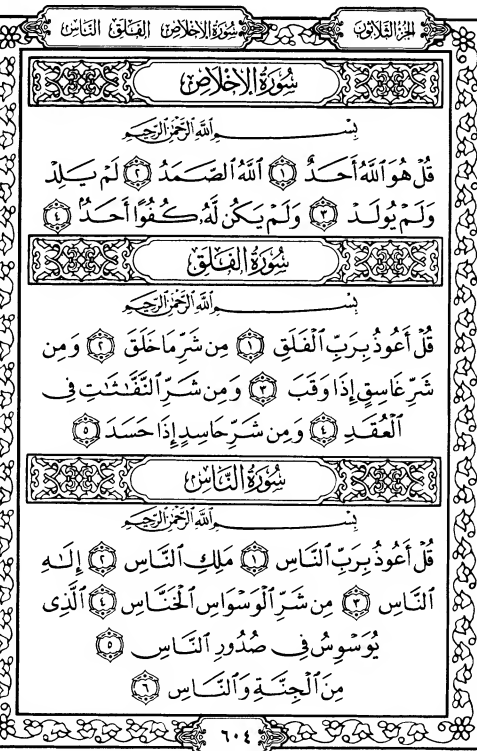 سُورَةُ الإِخْلَاصِ الفَلَقِ النَّاسِ
الجُزْءُ الثَّلَاثُونَ
سُورَةُ الإِخْلَاصِ
بِسْمِ اللَّهِ الرَّحْمَٰنِ الرَّحِيمِ
قُلْ هُوَ اللَّهُ أَحَدٌ ١ اللَّهُ الصَّمَدُ ٢ لَمْ يَلِدْ
وَلَمْ يُولَدْ ٣ وَلَمْ يَكُن لَّهُۥ كُفُوًا أَحَدٌۢ ٤
سُورَةُ الفَلَقِ
بِسْمِ اللَّهِ الرَّحْمَٰنِ الرَّحِيمِ
قُلْ أَعُوذُ بِرَبِّ الْفَلَقِ ١ مِن شَرِّ مَا خَلَقَ ٢ وَمِن
شَرِّ غَاسِقٍ إِذَا وَقَبَ ٣ وَمِن شَرِّ النَّفَّٰثَٰتِ فِى
الْعُقَدِ ٤ وَمِن شَرِّ حَاسِدٍ إِذَا حَسَدَ ٥
سُورَةُ النَّاسِ
بِسْمِ اللَّهِ الرَّحْمَٰنِ الرَّحِيمِ
قُلْ أَعُوذُ بِرَبِّ النَّاسِ ١ مَلِكِ النَّاسِ ٢ إِلَٰهِ
النَّاسِ ٣ مِن شَرِّ الْوَسْوَاسِ الْخَنَّاسِ ٤ الَّذِى
يُوَسْوِسُ فِى صُدُورِ النَّاسِ ٥
مِنَ الْجِنَّةِ وَالنَّاسِ ٦
٦٠٤